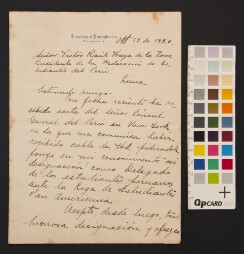 University of Pennsylvania
Philadelphia
Oct 12 de 1920.
Señor Victor Raúl Haya de la Torre
Presidente de la Federación de Es-
tudiantes del Perú
Lima.
Estimado amigo:
Con fecha reciente he re-
cibido carta del señor Consul
General del Perú en New York
en la que me comunica haber
recibido cable de Ud. pidiéndole
ponga en mi conocimiento mi
designación como delegado
de los estudiantes peruanos
ante la Liga de Estudiantes
Pan Americana.
Acepto desde luego, tan
honrosa designación y ofrezco
QPCARD